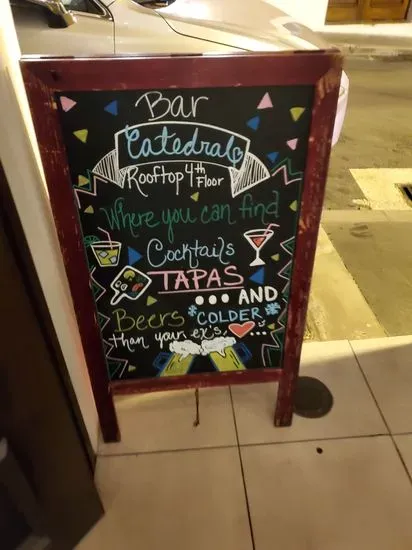 Bar
Catedral
Rooftop 4th
Floor
Where you can find
Cocktails
TAPAS
... AND
Beers *COLDER*
than your ex's ...